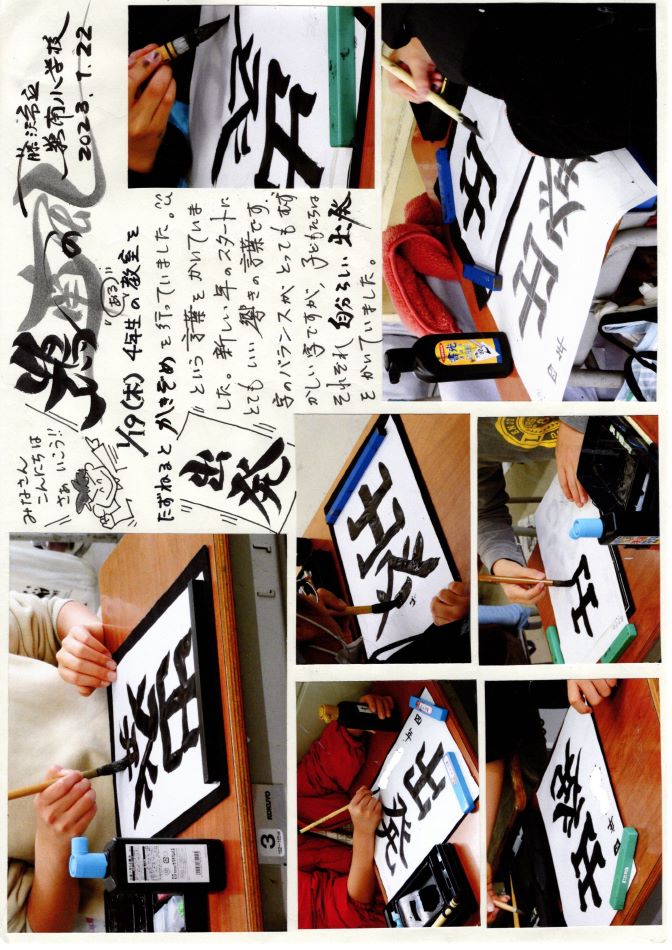 みなさん
こんにちは
さぁ いこう!!
鵠南の風
藤沢市立
鵠南小学校
2023.1.22
1/19(木) "ある" 4年生の教室を
たずねると かきぞめを行っていました。
出発
"という言葉をかいていま
した。新しい年のスタートに
とてもいい響きの言葉です。
字のバランスが、とってもむず
かしい字ですが、子どもたちは
それぞれ 自分らしい 出発
をかいていました。
出発
KOKUYO
3
出発
出発
出
出発
出発
四年